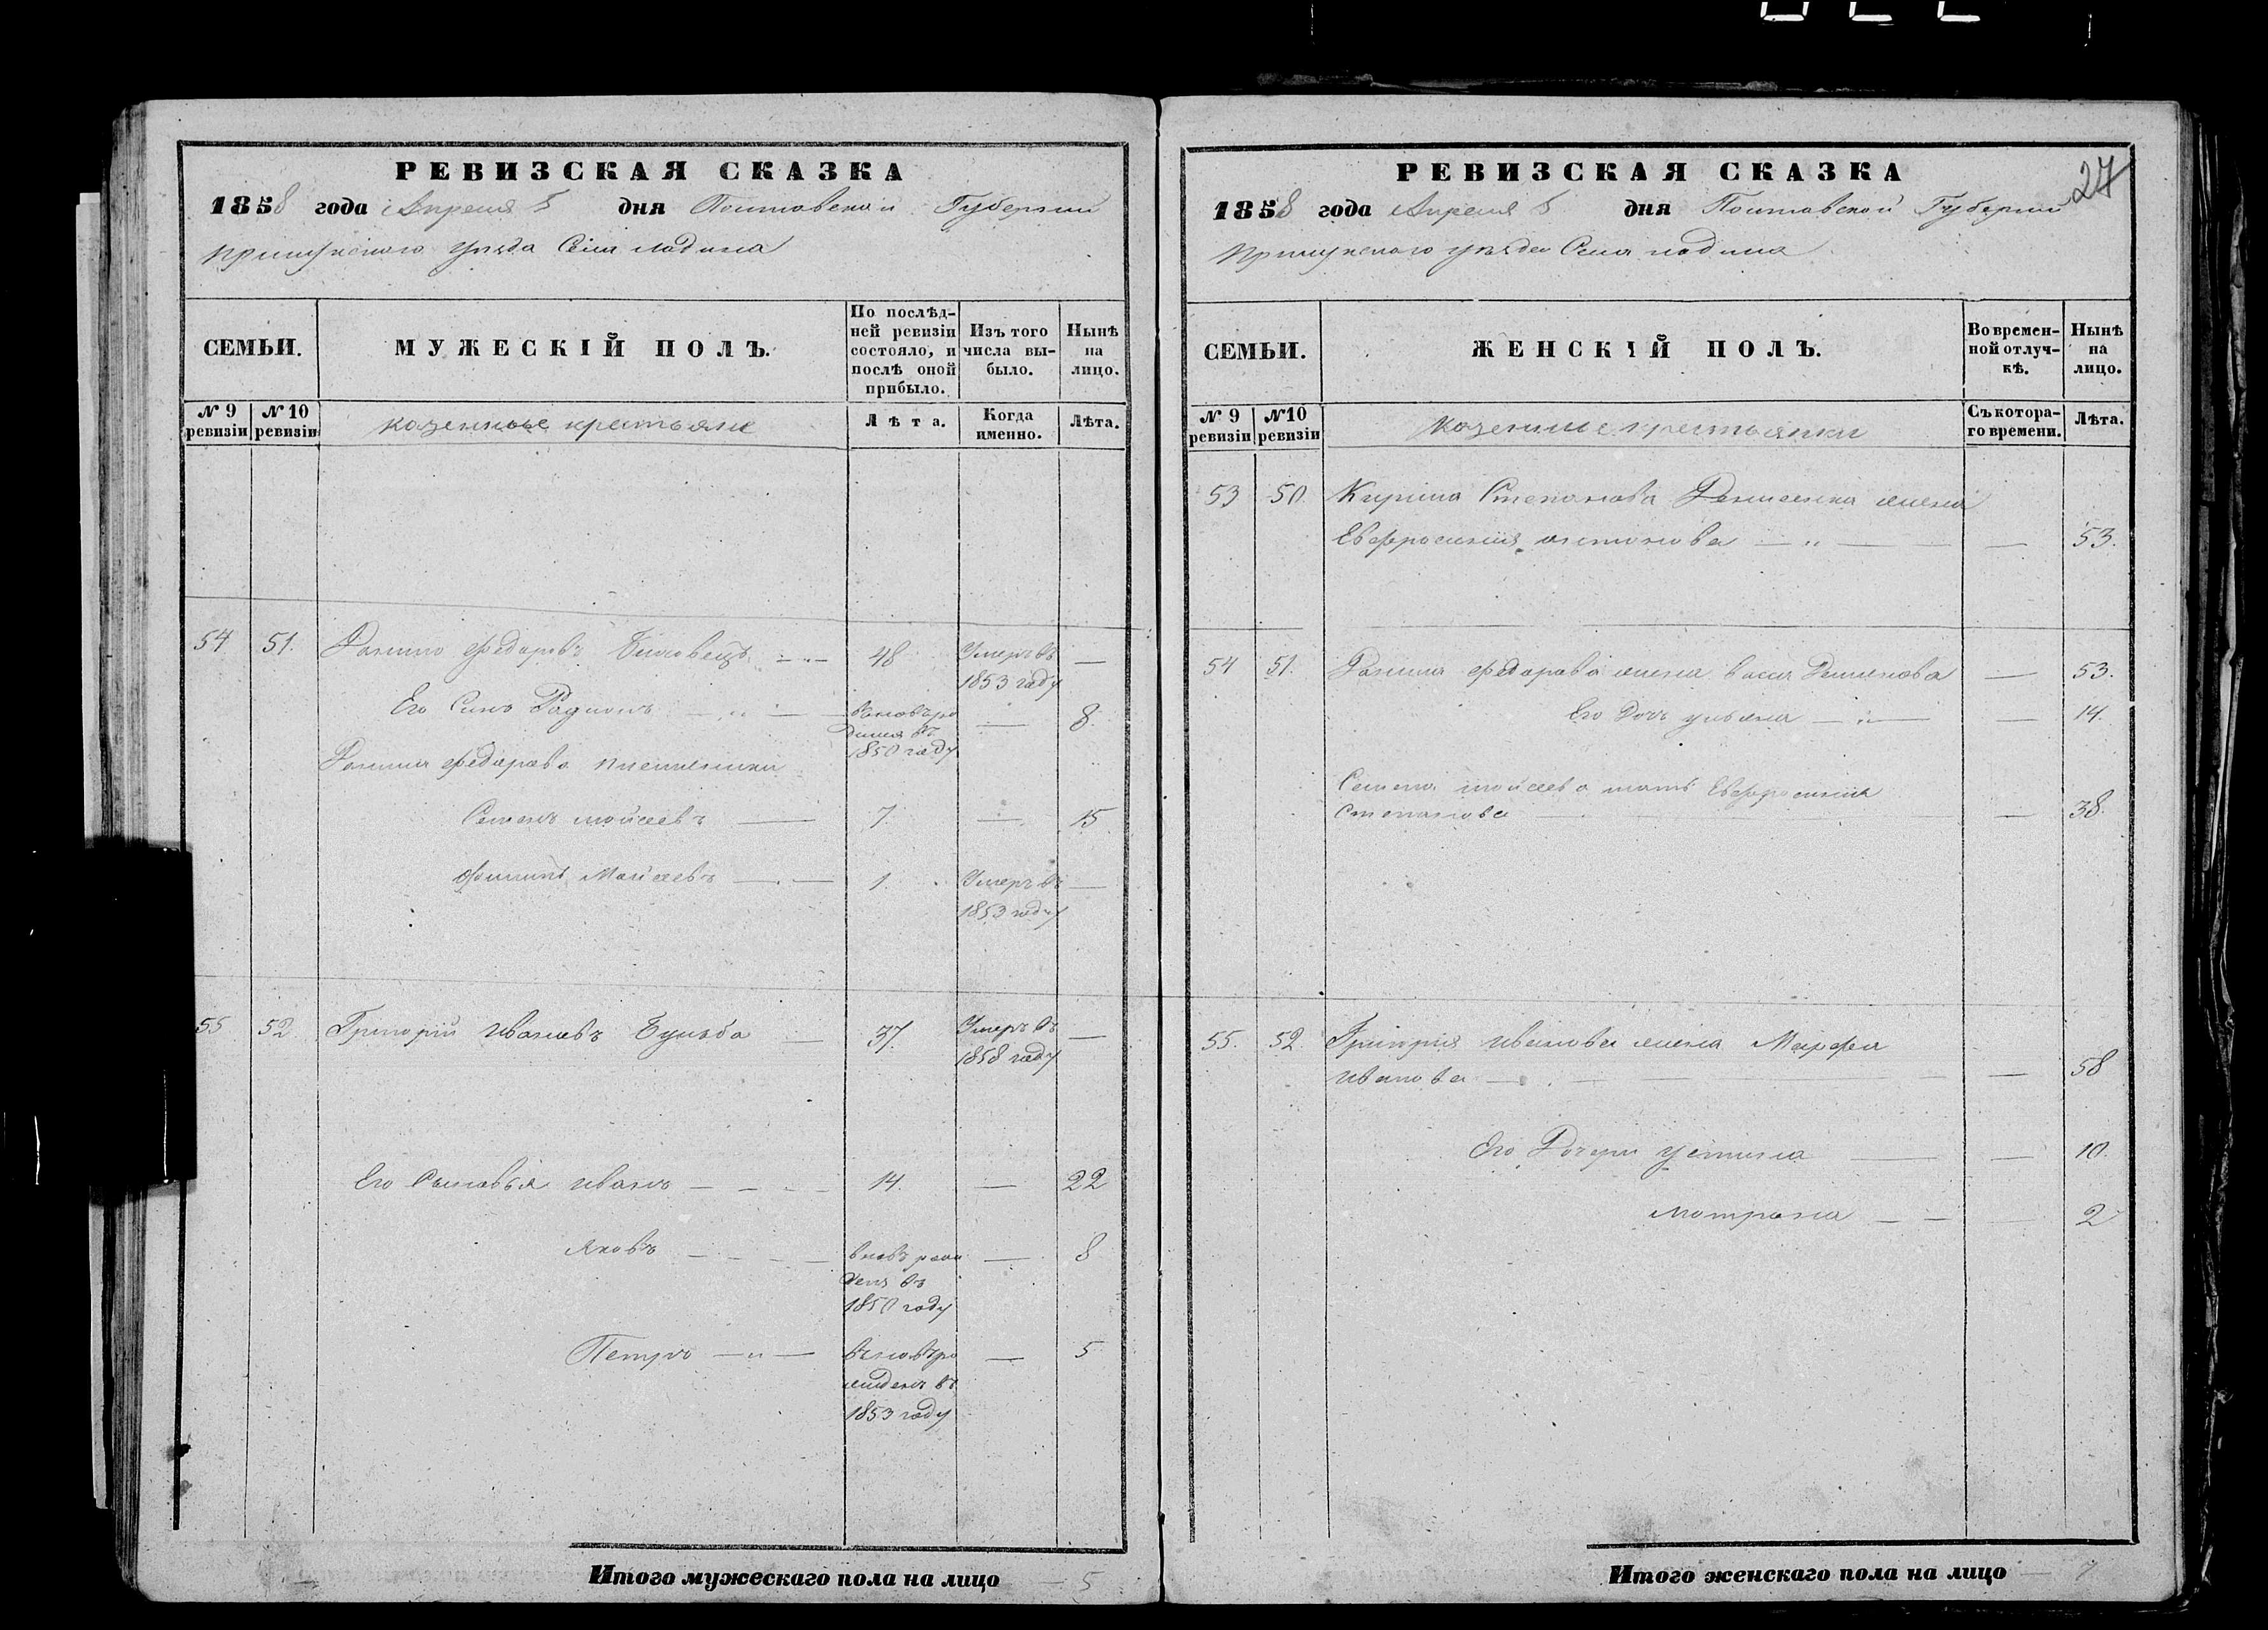 РЕВИЗСКАЯ СКАЗКА
1858 года Апреля 5 дня Полтавской Губернии
Прилукского уезда Села Ладина
СЕМЬИ.
МУЖЕСКІЙ ПОЛЪ.
По послѣд-
ней ревизіи
состояло, и
послѣ оной
прибыло.
Изъ того
числа вы-
было.
Нынѣ
на
лицо.
№ 9
ревизіи
№ 10
ревизіи
казенные крестьяне
Лѣта.
Когда
именно.
Лѣта.
54 51. Федоровъ 48 Умеръ въ —
1853 году
Его Синъ Родионъ — 8.
1850 году
Федорова племенники
Семенъ Мойсеевъ — 7. — 15
Филипъ Мойсеевъ — 1. Умеръ въ —
1853 году
55 52 Григорий Ивановъ Бульба — 37. Умеръ въ —
1858 году
Его Сыновья Иванъ — 14. — 22
Яковъ — вновъ рож — 8
денъ въ
1850 году
Петръ — вновъ ро — 5
жденъ въ
1853 году
Итого мужескаго пола на лицо 5
РЕВИЗСКАЯ СКАЗКА 27
1858 года Апреля 5 дня Полтавской Губернии
Прилукского уезда Села Ладина
СЕМЬИ.
ЖЕНСКІЙ ПОЛЪ.
Во времен-
ной отлуч-
кѣ.
Нынѣ
на
лицо.
№ 9
ревизіи
№10
ревизіи
Казенные крестьянки
Съ котора-
го времени.
Лѣта.
53 50. Кирила Степанова жена
Евфросиния Антонова — — 53.
54 51. Федорова жена Васса — 53.
Его Доч Ульяна — — 14.
Семена Мойсеева мать Евфросиния
Степанова — — 38.
55. 52. Григория Иванова жена Марфа
Иванова — — 58
Его Дочери Устина — — 10.
Мотрона — — 2
Итого женскаго пола на лицо 7